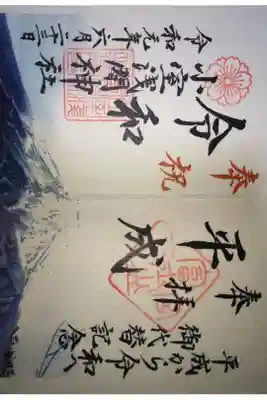 平成から令和へ
御代替記念
奉拝
平成
富士山
奉祝
令和
小室浅間神社
令和元年六月二十三日